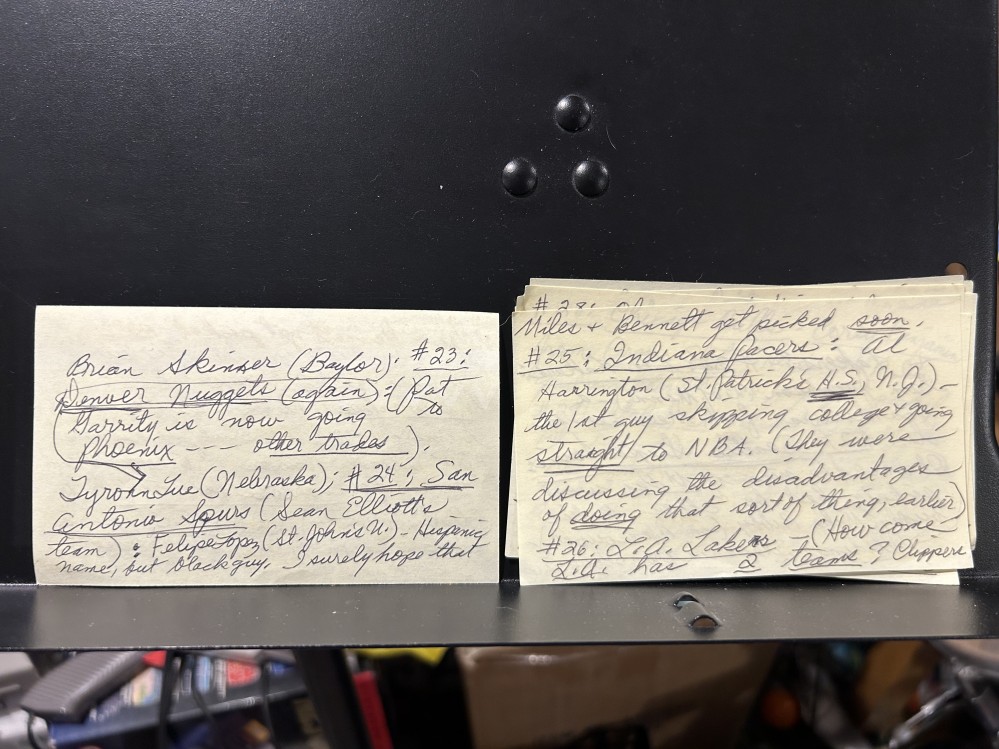 Brian Skinner (Baylor); #23:
Denver Nuggets (again): (Pat
Garrity is now going to
Phoenix --- other trades).
TyronnLue (Nebraska); #24: San
Antonio Spurs (Sean Elliott's
team): FelipeLopez (St. John's U.) - Hispanic
name, but black guy. I surely hope that
#28:
Miles + Bennett get picked soon.
#25: Indiana Pacers: Al
Harrington (St. Patrick's H.S., N.J.) -
the 1st guy skipping college + going
straight to NBA. (They were
discussing the disadvantages
of doing that sort of thing, earlier)
#26: L.A. Lakers (How come
L.A. has 2 teams? Clippers